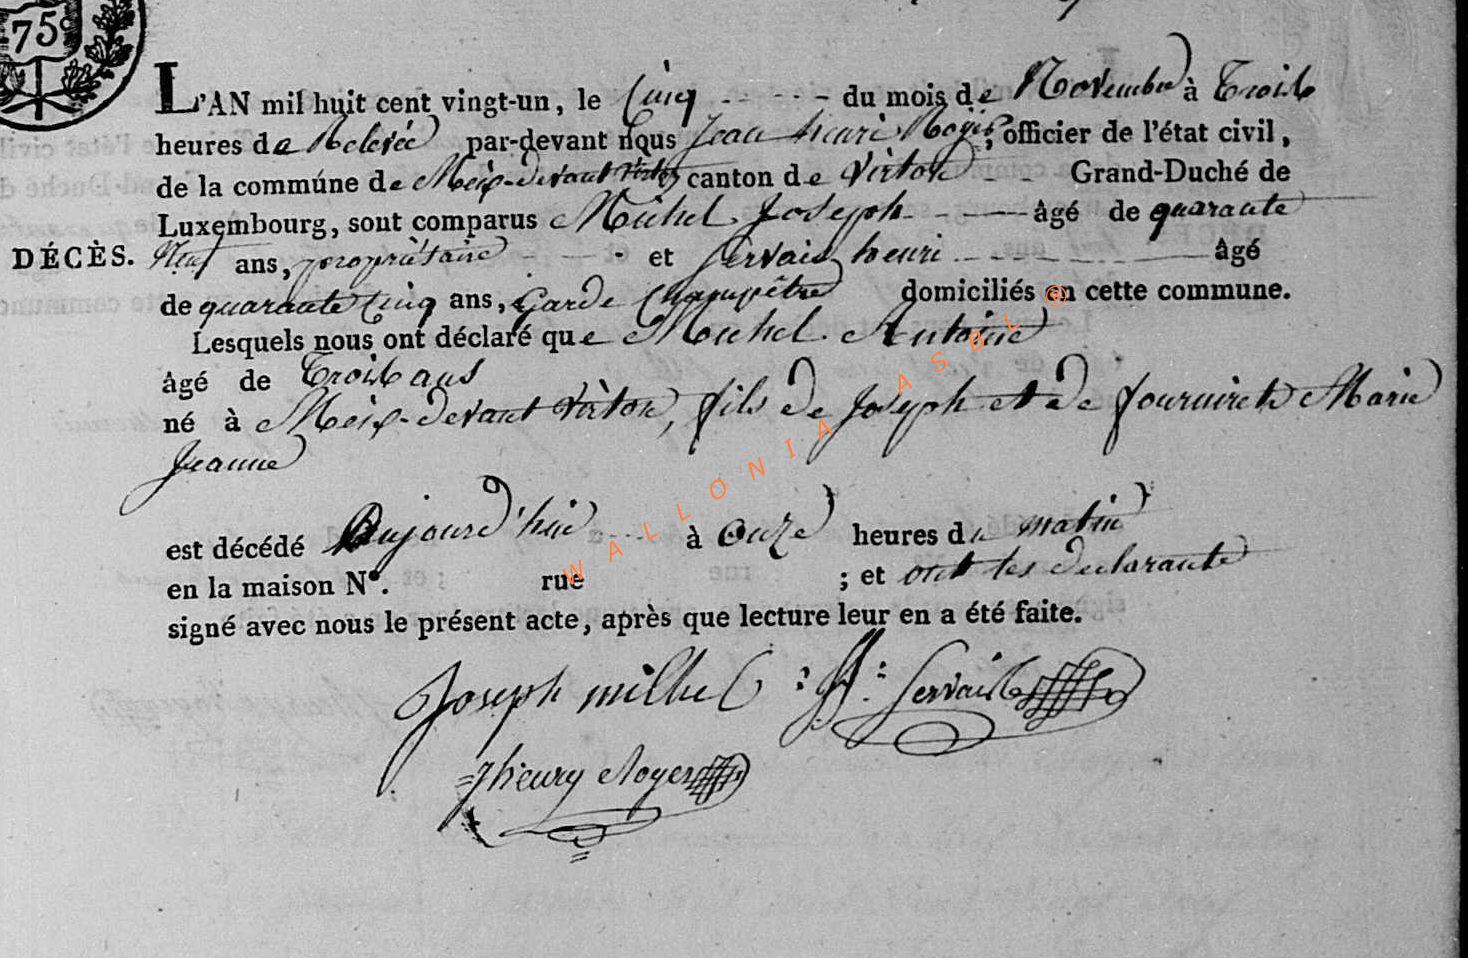 75
L'AN mil huit cent vingt-un, le Cinq du mois de Novembre à Trois
heures de Relevée par-devant nous Jean henri officier de l'état civil,
de la commúne de Meix-devant virton canton de Virton Grand-Duché de
Luxembourg, sont comparus Michel Joseph âgé de quarante
DÉCÈS. Neuf ans, propriétaire et Servais henri âgé
de quarante Cinq ans, Garde Champêtre domiciliés en cette commune.
Lesquels nous ont déclaré que Michel Antoine
âgé de Trois ans
né à Meix-devant virton, fils de Joseph et de Marie
Jeanne
est décédé Aujourd'hui à Onze heures du matin
en la maison N°. rue ; et ont les declarants
signé avec nous le présent acte, après que lecture leur en a été faite.
Joseph michel H: Servais
Jhenry
WALLONIA ASBL @